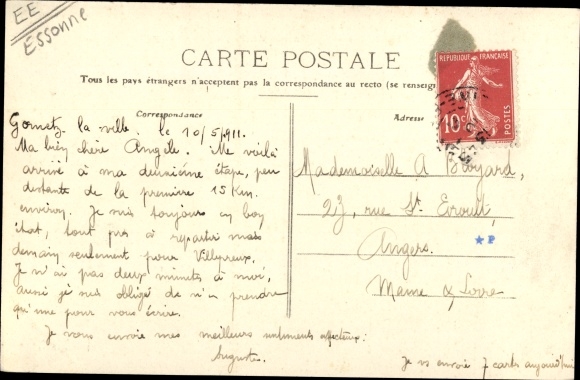 EE
Essonne
CARTE POSTALE
Tous les pays étrangers n'acceptent pas la correspondance au recto (se renseign
Correspondance
Adresse
RÉPUBLIQUE FRANÇAISE
10c
POSTES
la ville. le 10/5/911.
Ma bien chère Angèle. Me voilà
arrivé à ma deuxième étape, peu
distante de la première 15 Km.
environ. Je suis toujours en bon
état, tout prêt à repartir mais
demain seulement pour
Je n'ai pas deux minutes à moi,
aussi je suis obligé de n'en prendre
qu'une pour vous écrire.
Je vous envoie mes meilleurs sentiments affectueux.
Auguste.
Mademoiselle A
23, rue St.
Angers.
Maine & Loire
★P
Je vs envoie 7 cartes aujourd'hui